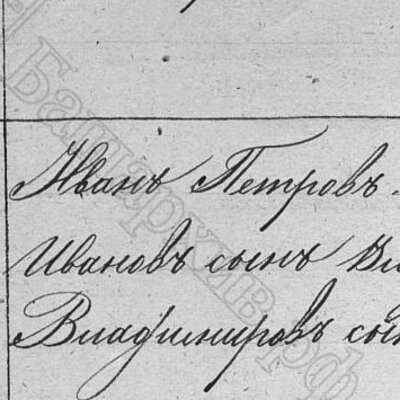 Иванъ Петровъ.
Ивановъ сынъ
Владимировъ сын
Башархив.рф